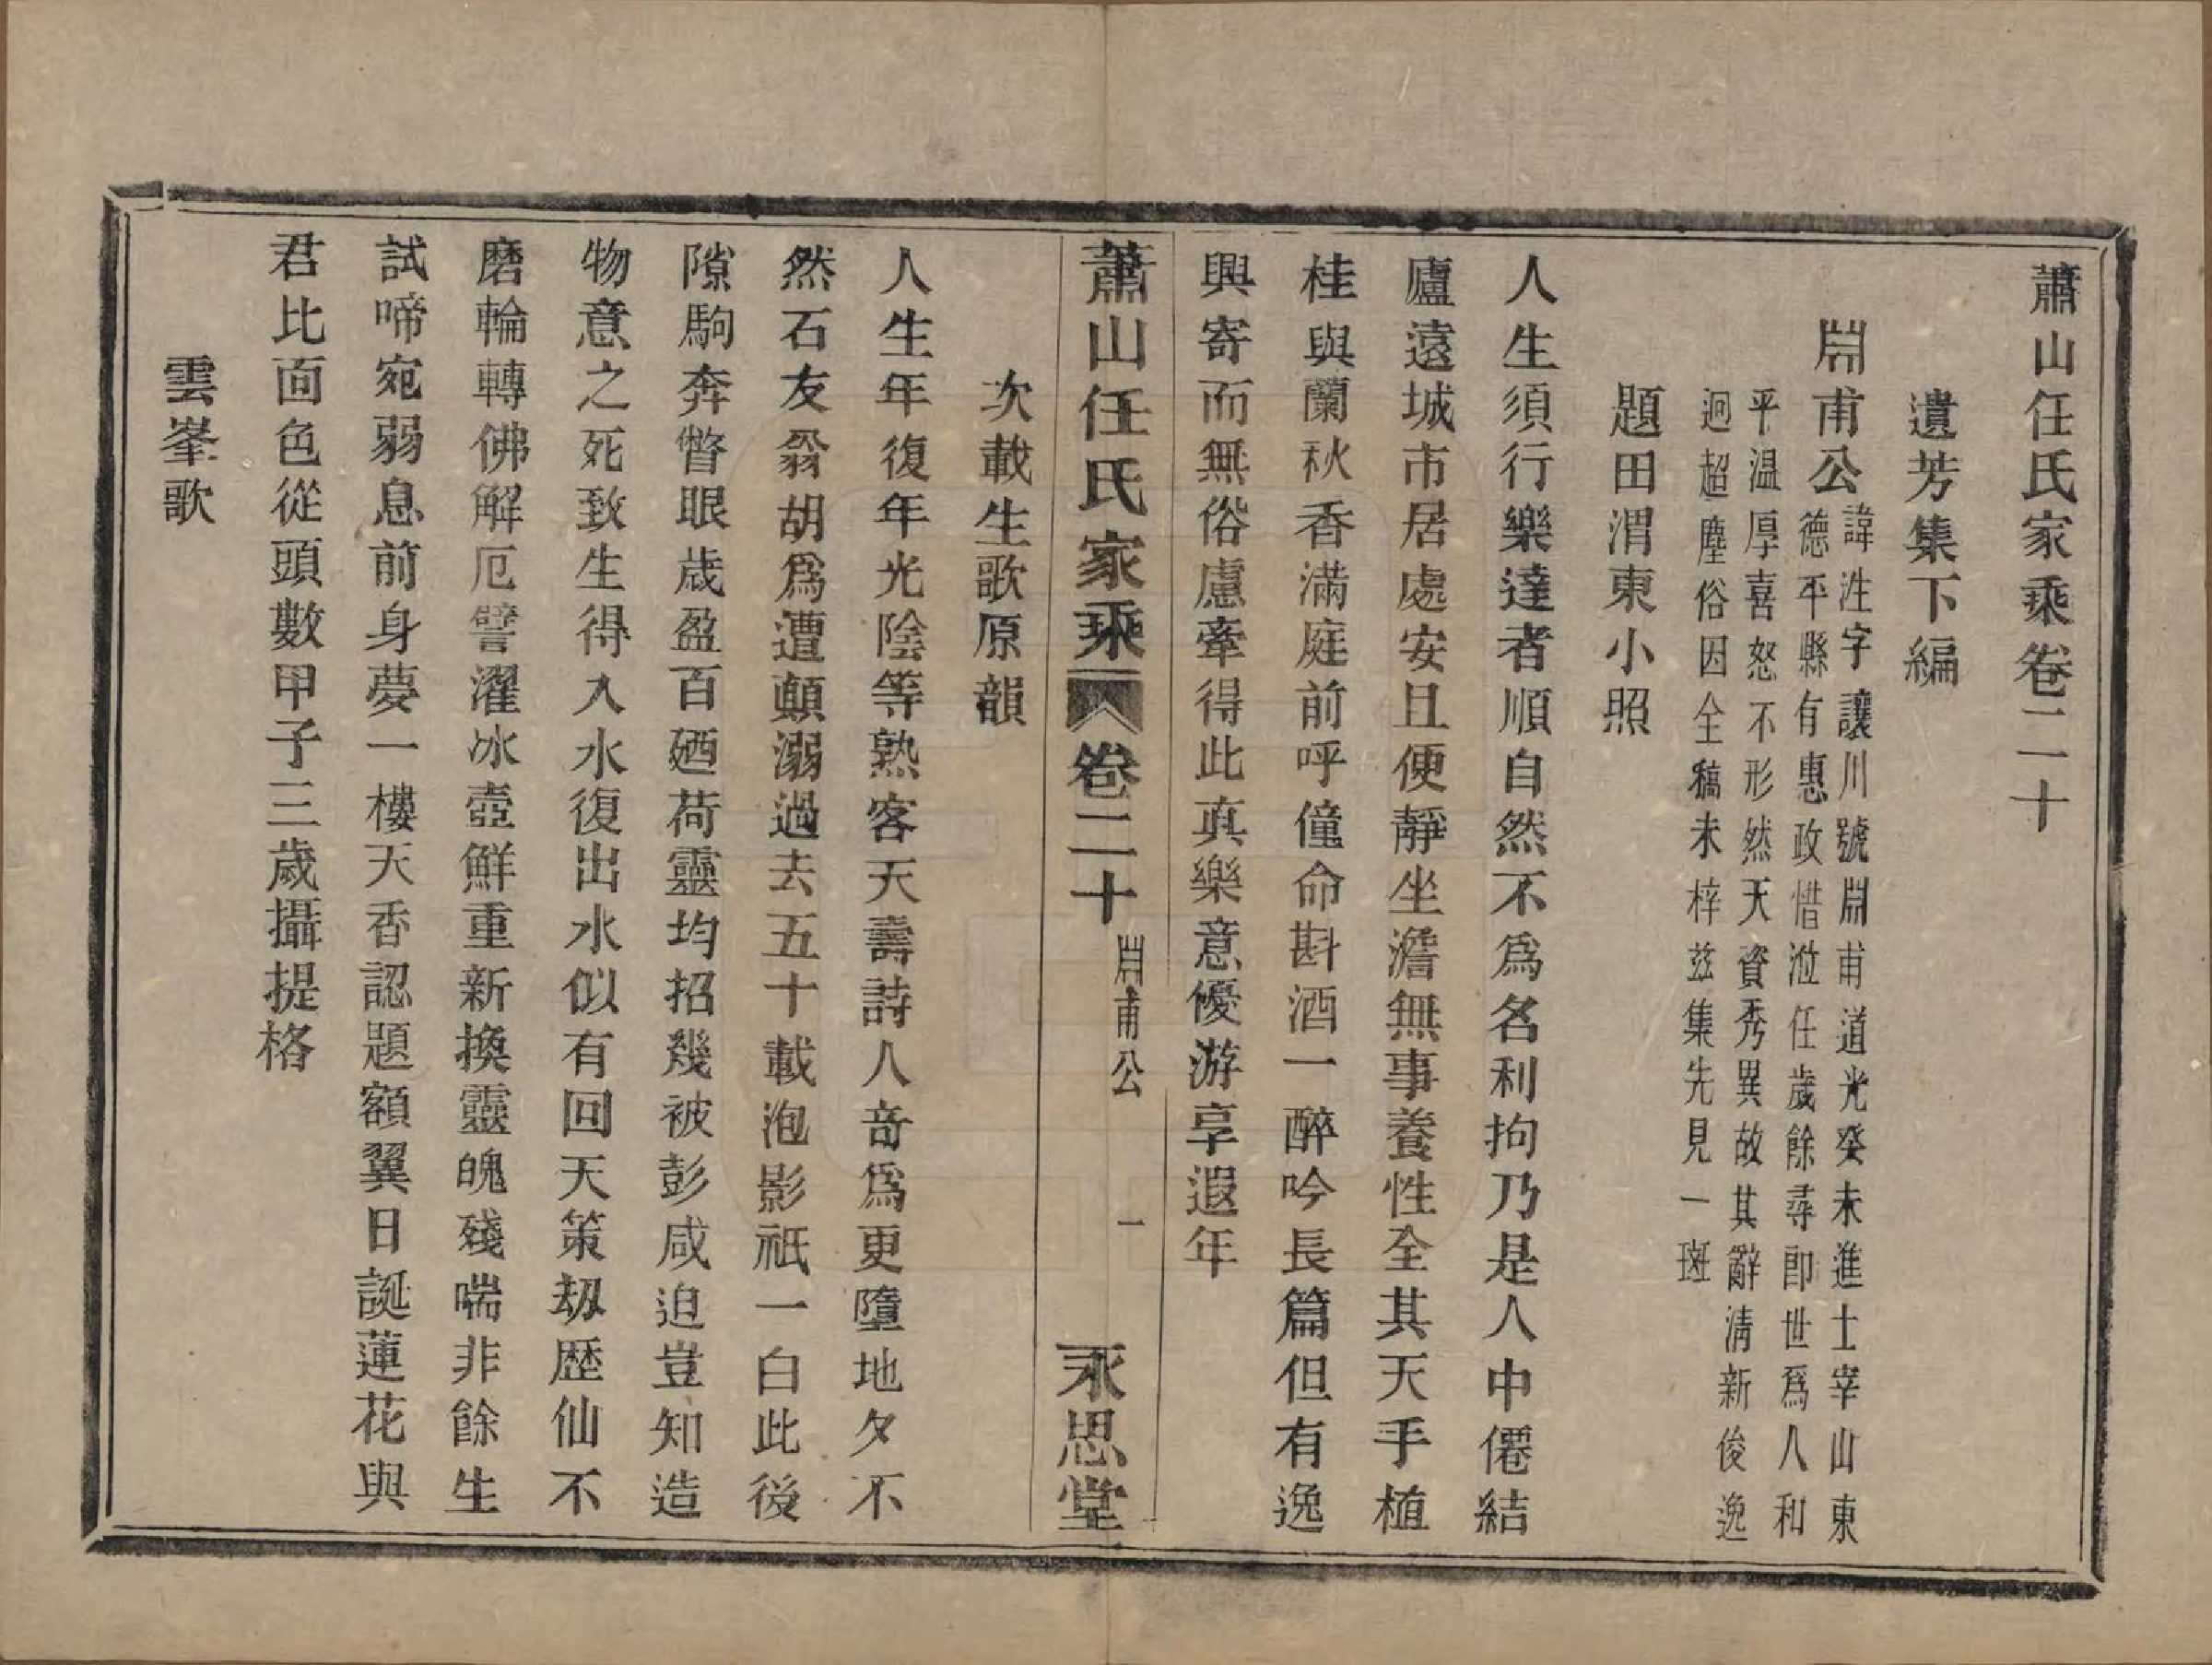 蕭山任氏家乘卷二十
遺芳集下編
淵甫公
諱泩字讓川號淵甫道光癸未進士宰山東
德平縣有惠政惜涖任歲餘尋卽世爲人和
平温厚喜怒不形然天資秀異故其辭清新俊逸
迥超塵俗因全稿未梓兹集先見一斑
題田渭東小照
人生須行樂達者順自然不爲名利拘乃是人中僊結
廬遠城市居處安且便靜坐澹無事養性全其天手植
桂與蘭秋香滿庭前呼僮命斟酒一醉吟長篇但有逸
興寄而無俗慮牽得此眞樂意優游享遐年
蕭山任氏家乘 卷二十 淵甫公 一 永思堂
次載生歌原韻
人生年年復年光陰等熟客天壽詩人奇爲更墮地夕不
然石友翁胡爲遭顛溺過去五十載泡影祇一白此後
隙駒奔瞥眼歲盈百廼荷靈均招幾被彭咸迫豈知造
物意之死致生得入水復出水似有回天策劫歷仙不
磨輪轉佛解厄譬濯冰壺鮮重新換靈魄殘喘非餘生
試啼宛弱息前身夢一樓天香認題額翼日誕蓮花與
君比面色從頭數甲子三歲攝提格
雲峯歌